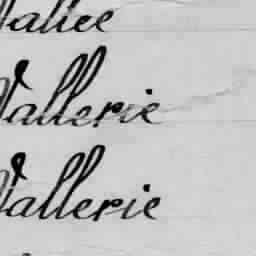 Vallee
Vallerie
Vallerie